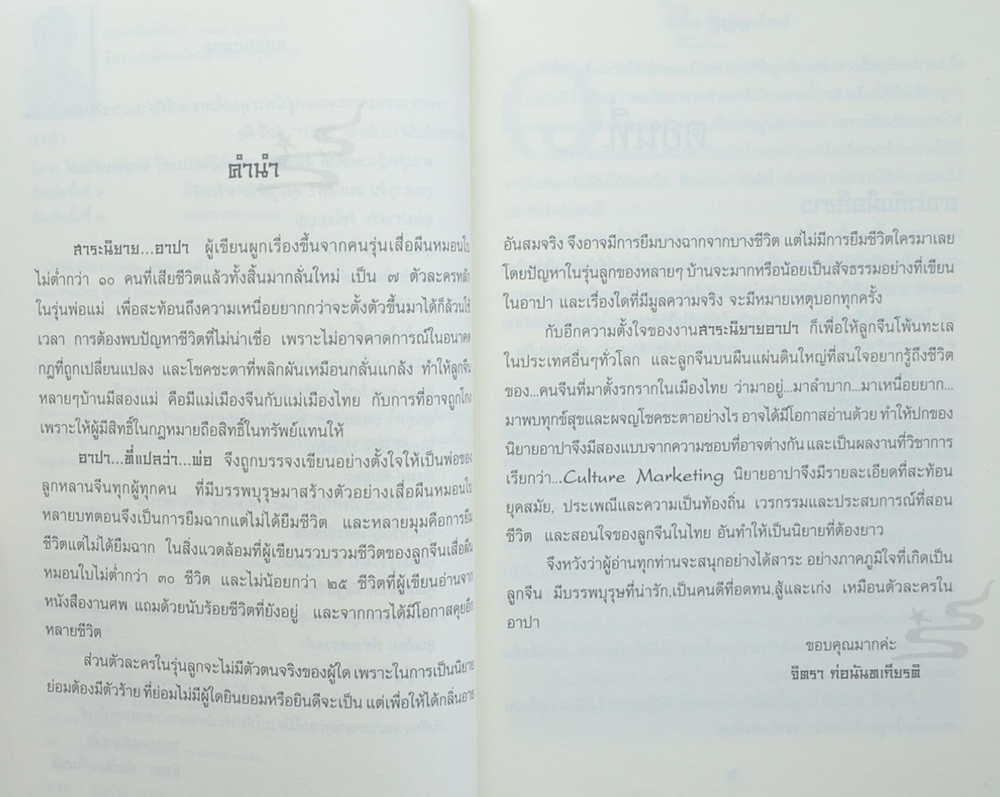 คำนำ
สาระนิยาย...อาปา ผู้เขียนผูกเรื่องขึ้นจากคนรุ่นเสื่อผืนหมอนใบ
ไม่ต่ำกว่า ๑๐ คนที่เสียชีวิตแล้วทั้งสิ้นมากลั่นใหม่ เป็น ๗ ตัวละครหลัก
ในรุ่นพ่อแม่ เพื่อสะท้อนถึงความเหนื่อยยากกว่าจะตั้งตัวขึ้นมาได้ก็ล้วนใช้
เวลา การต้องพบปัญหาชีวิตที่ไม่น่าเชื่อ เพราะไม่อาจคาดการณ์ในอนาคต
กฎที่ถูกเปลี่ยนแปลง และโชคชะตาที่พลิกผันเหมือนกลั่นแกล้ง ทำให้ลูกจีน
หลายๆบ้านมีสองแม่ คือมีแม่เมืองจีนกับแม่เมืองไทย กับการที่อาจถูกโกง
เพราะให้ผู้มีสิทธิ์ในกฎหมายถือสิทธิ์ในทรัพย์แทนให้
อาปา...ที่แปลว่า...พ่อ จึงถูกบรรจงเขียนอย่างตั้งใจให้เป็นพ่อของ
ลูกหลานจีนทุกผู้ทุกคน ที่มีบรรพบุรุษมาสร้างตัวอย่างเสื่อผืนหมอนใบ
หลายบทตอนจึงเป็นการยืมฉากแต่ไม่ได้ยืมชีวิต และหลายมุมคือการยืม
ชีวิตแต่ไม่ได้ยืมฉาก ในสิ่งแวดล้อมที่ผู้เขียนรวบรวมชีวิตของลูกจีนเสื่อผืน
หมอนใบไม่ต่ำกว่า ๓๐ ชีวิต และไม่น้อยกว่า ๒๕ ชีวิตที่ผู้เขียนอ่านจาก
หนังสืองานศพ แถมด้วยนับร้อยชีวิตที่ยังอยู่ และจากการได้มีโอกาสคุยอีก
หลายชีวิต
ส่วนตัวละครในรุ่นลูกจะไม่มีตัวตนจริงของผู้ใด เพราะในการเป็นนิยาย
ย่อมต้องมีตัวร้าย ที่ย่อมไม่มีผู้ใดยินยอมหรือยินดีจะเป็น แต่เพื่อให้ได้กลิ่นอาย
อันสมจริง จึงอาจมีการยืมบางฉากจากบางชีวิต แต่ไม่มีการยืมชีวิตใครมาเลย
โดยปัญหาในรุ่นลูกของหลายๆ บ้านจะมากหรือน้อยเป็นสัจธรรมอย่างที่เขียน
ในอาปา และเรื่องใดที่มีมูลความจริง จะมีหมายเหตุบอกทุกครั้ง
กับอีกความตั้งใจของงานสาระนิยายอาปา ก็เพื่อให้ลูกจีนโพ้นทะเล
ในประเทศอื่นๆทั่วโลก และลูกจีนบนผืนแผ่นดินใหญ่ที่สนใจอยากรู้ถึงชีวิต
ของ...คนจีนที่มาตั้งรกรากในเมืองไทย ว่ามาอยู่...มาลำบาก...มาเหนื่อยยาก...
มาพบทุกข์สุขและผจญโชคชะตาอย่างไร อาจได้มีโอกาสอ่านด้วย ทำให้ปกของ
นิยายอาปาจึงมีสองแบบจากความชอบที่อาจต่างกัน และเป็นผลงานที่วิชาการ
เรียกว่า...Culture Marketing นิยายอาปาจึงมีรายละเอียดที่สะท้อน
ยุคสมัย, ประเพณีและความเป็นท้องถิ่น เวรกรรมและประสบการณ์ที่สอน
ชีวิต และสอนใจของลูกจีนในไทย อันทำให้เป็นนิยายที่ต้องยาว
จึงหวังว่าผู้อ่านทุกท่านจะสนุกอย่างได้สาระ อย่างภาคภูมิใจที่เกิดเป็น
ลูกจีน มีบรรพบุรุษที่น่ารัก,เป็นคนดีที่อดทน,สู้และเก่ง เหมือนตัวละครใน
อาปา
ขอบคุณมากค่ะ
จิตรา ก่อนันทเกียรติ